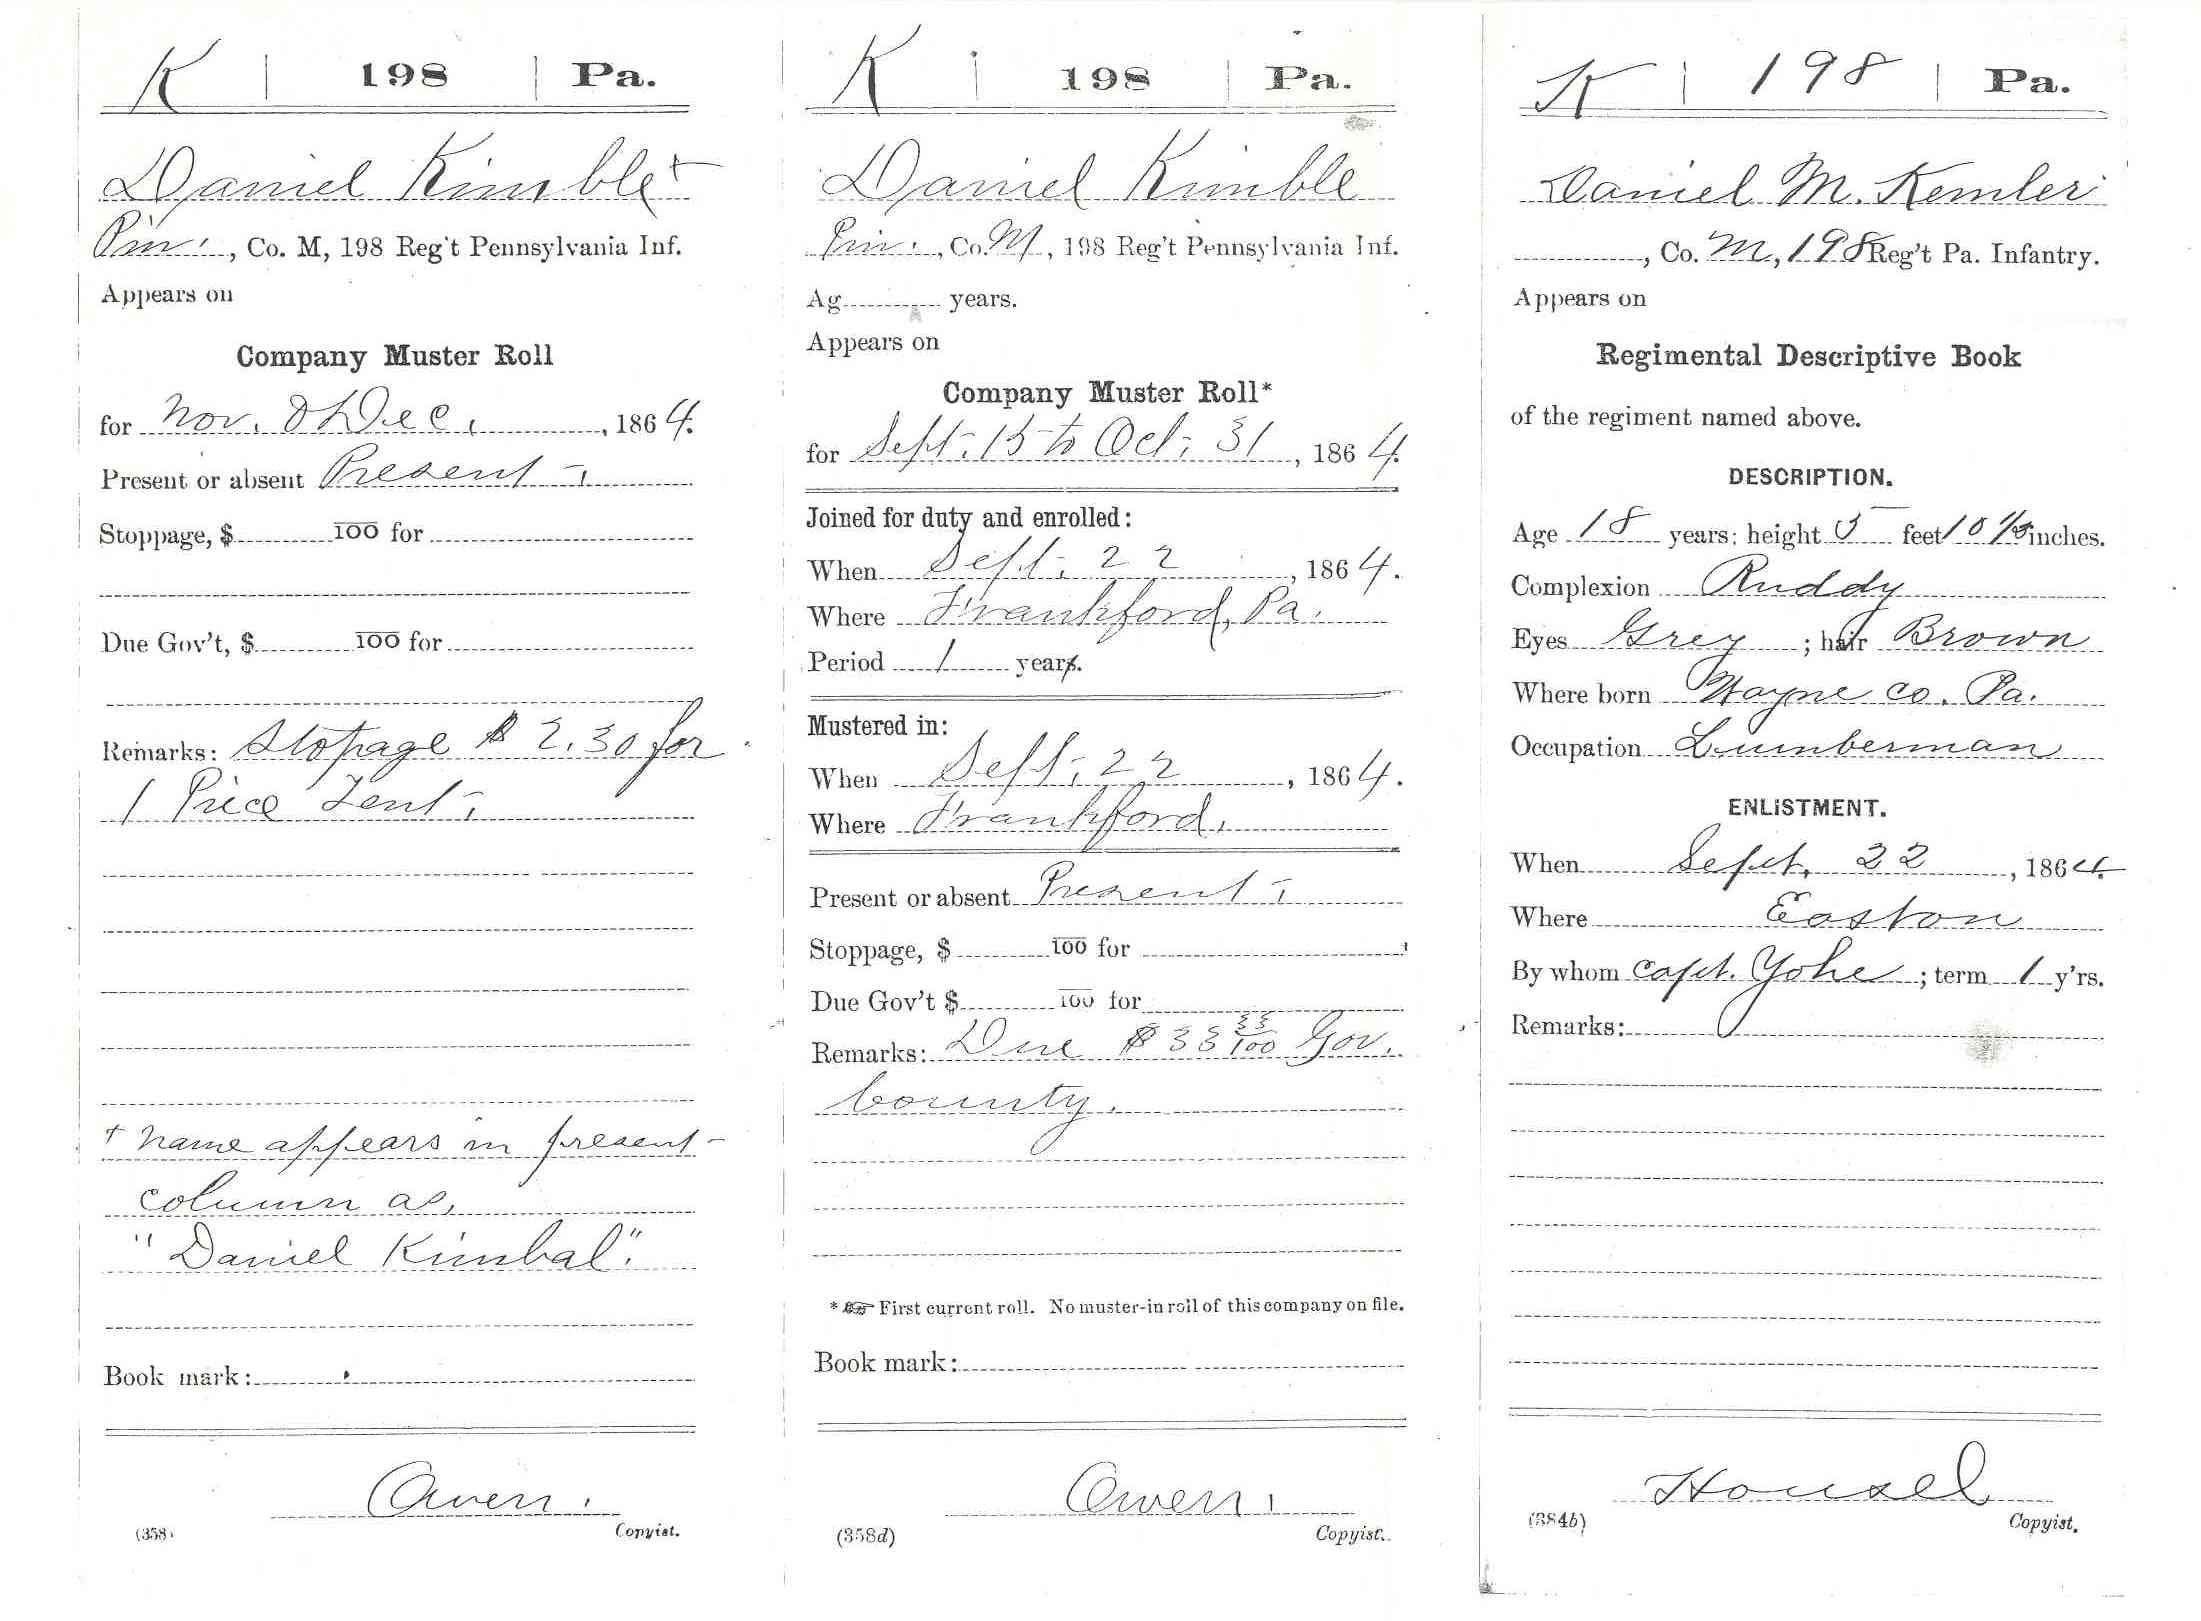 K | 198 | Pa.
Daniel Kimble +
Priv. , Co. M, 198 Reg't Pennsylvania Inf.
Appears on
Company Muster Roll
for Nov. & Dec. , 1864.
Present or absent Present.
Stoppage, $ 100 for
Due Gov't, $ 100 for
Remarks: Stopage $2.30 for
1 Piece Tent.
+ Name appears in present
column as,
"Daniel Kimbal".
Book mark:
Owen.
(358) Copyist.
K | 198 | Pa.
Daniel Kimble
Priv. , Co. M, 198 Reg't Pennsylvania Inf.
Ag years.
Appears on
Company Muster Roll*
for Sept. 15 to Oct. 31 , 1864.
Joined for duty and enrolled:
When Sept. 22 , 1864.
Where Frankford, Pa.
Period 1 years.
Mustered in:
When Sept. 22 , 1864.
Where Frankford.
Present or absent Present.
Stoppage, $ 100 for
Due Gov't $ 100 for
Remarks: Due $33 33/100 Gov.
bounty.
* ☞ First current roll. No muster-in roll of this company on file.
Book mark:
Owen.
(358d) Copyist.
K | 198 | Pa.
Daniel M. Kemler
, Co. M, 198 Reg't Pa. Infantry.
Appears on
Regimental Descriptive Book
of the regiment named above.
DESCRIPTION.
Age 18 years; height 5 feet 10 inches.
Complexion Ruddy
Eyes Grey ; hair Brown
Where born Wayne co. Pa.
Occupation Lumberman
ENLISTMENT.
When Sept. 22 , 1864.
Where Easton
By whom Capt. Yohe ; term 1 y'rs.
Remarks:
Housel
(384b) Copyist.